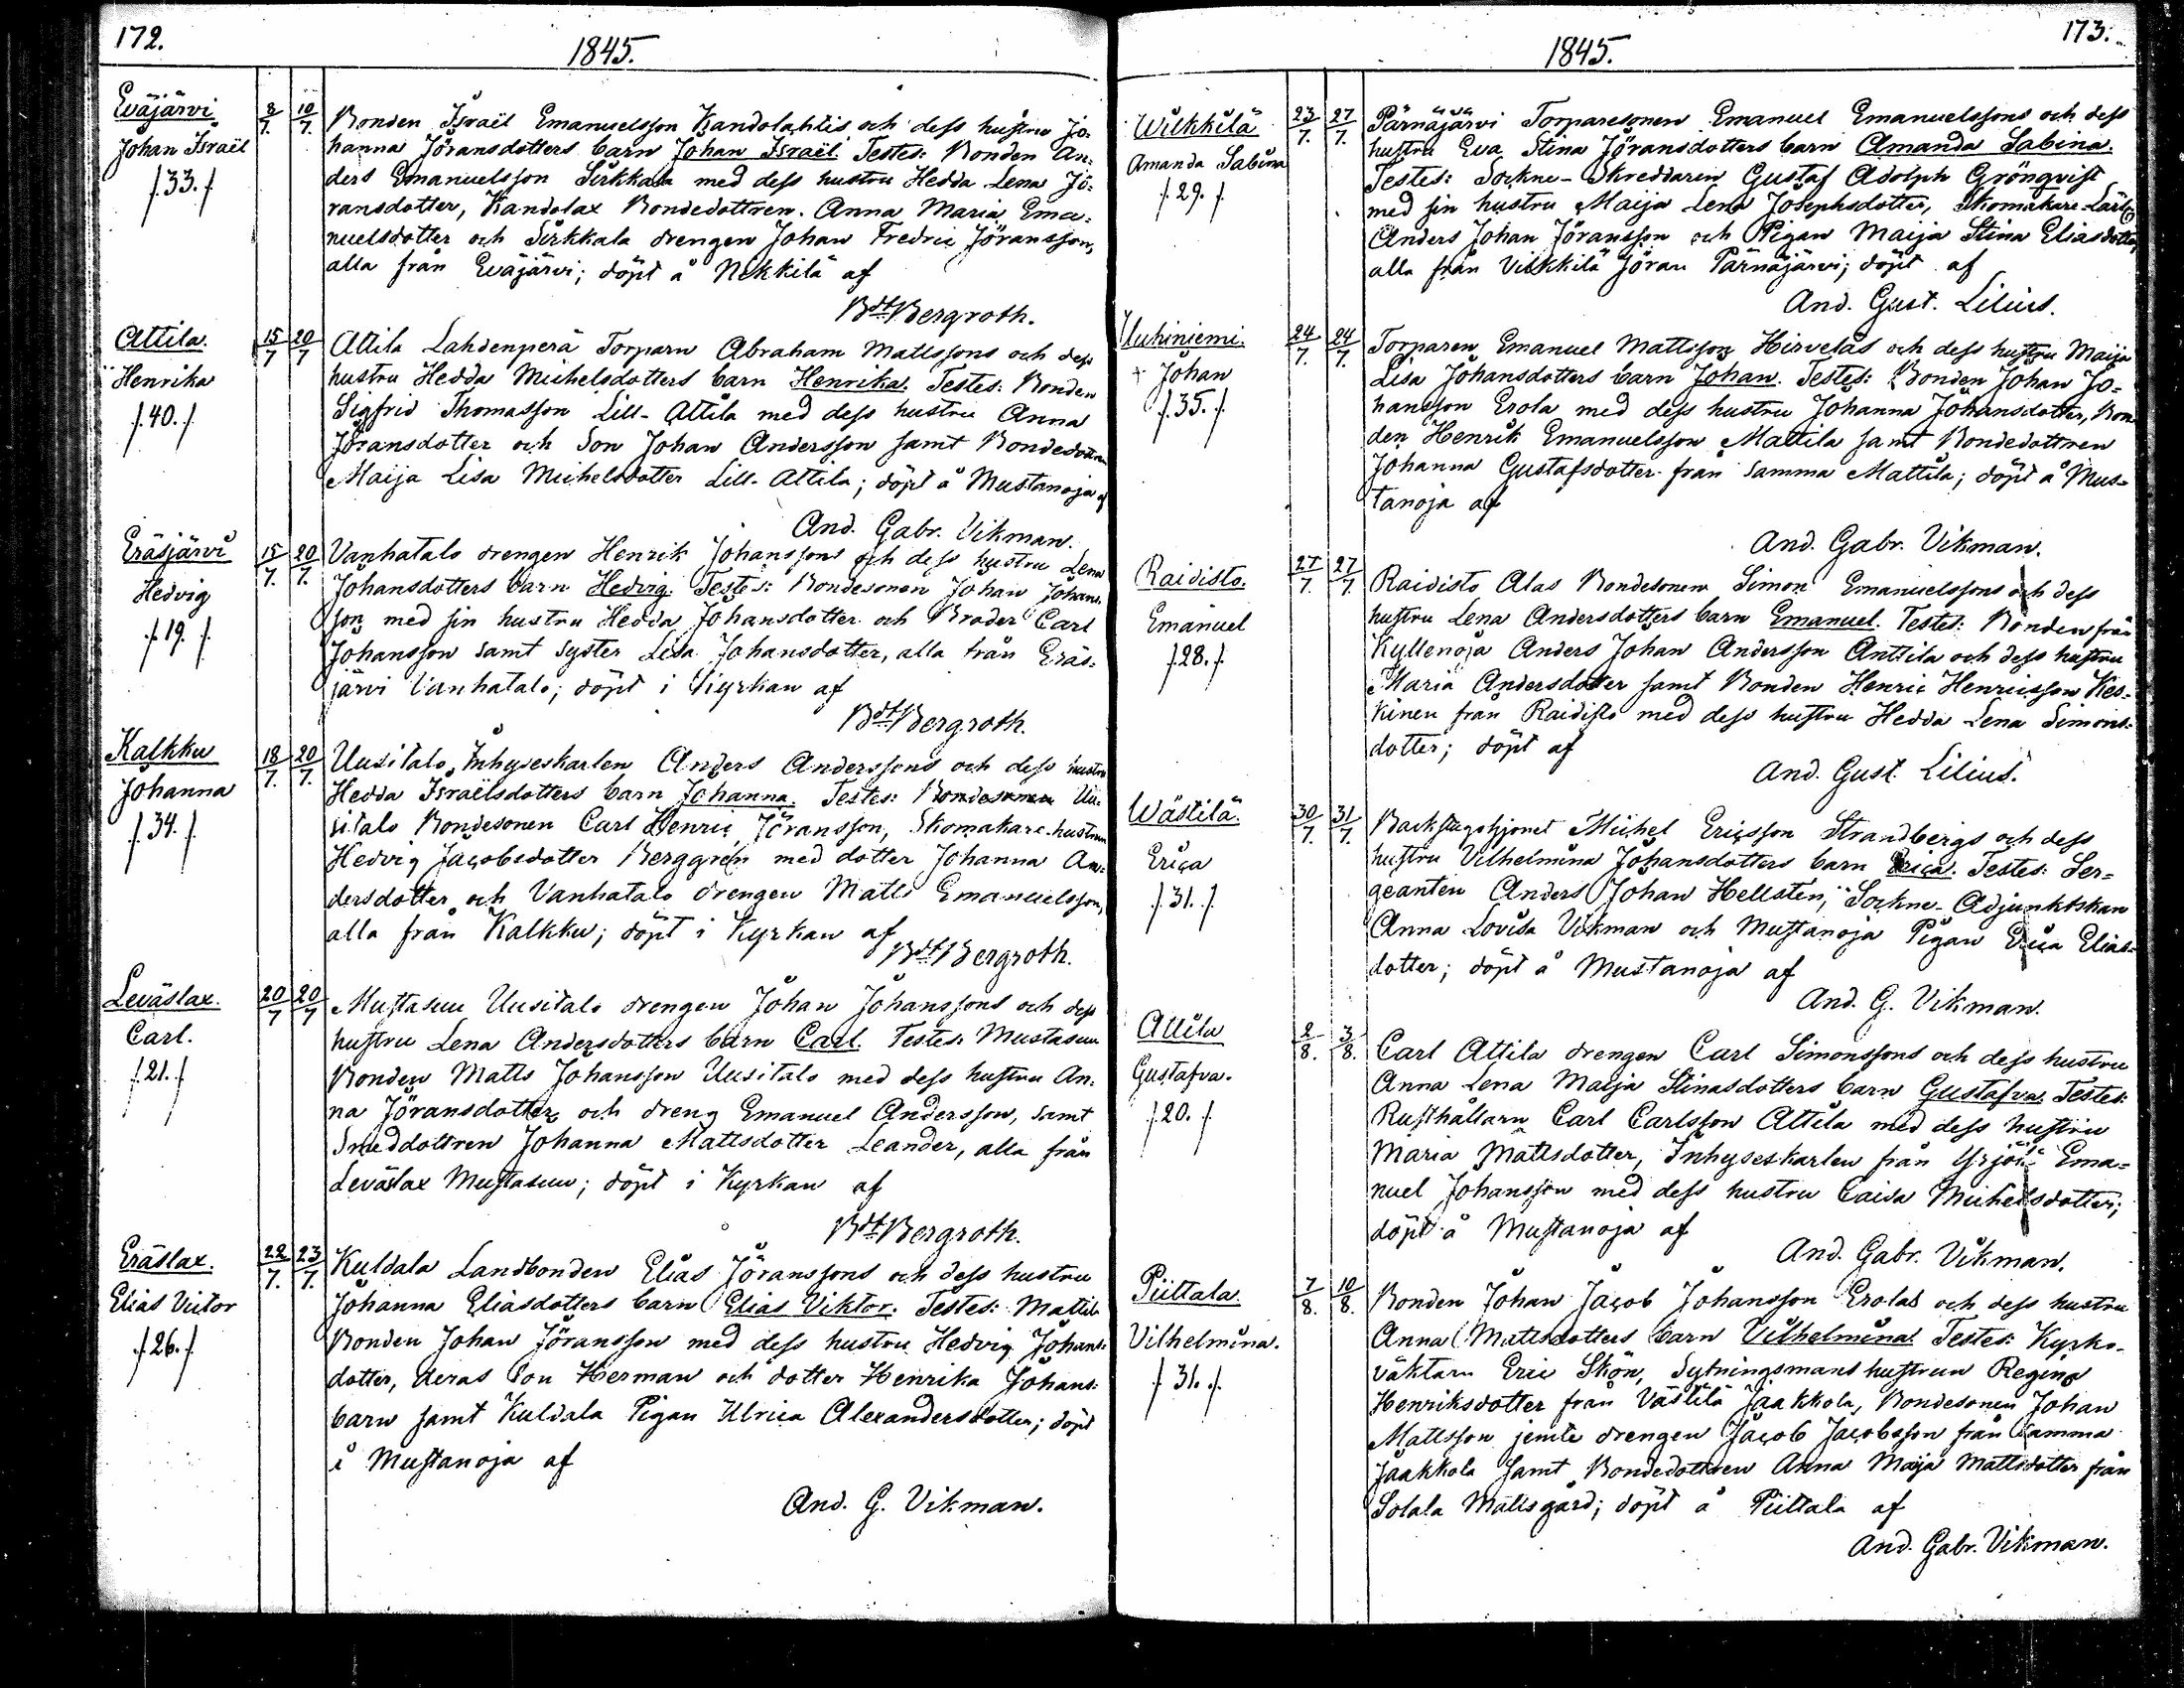 172.
1845.
Eväjärvi
Johan Israël
f. 33. f
8/7. 10/7.
Bonden Israël Emanuelsson Kandolahtis och dess hustru Jo-
hanna Jöransdotters barn Johan Israël. Testes: Bonden An-
ders Emanuelsson Sirkkala med dess hustru Hedda Lena Jö-
ransdotter, Kandolax Bondedottren Anna Maria Ema-
nuelsdotter och Sirkkala drengen Johan Fredric Jöransson,
alla från Eväjärvi; döpt å Nikkilä af
Bdt Bergroth.
Attila.
Henrika
f. 40. f
15/7 20/7
Attila Lahdenperä Torparn Abraham Mattssons och dess
hustru Hedda Michelsdotters barn Henrika. Testes: Bonden
Sigfrid Thomasson Lill-Attila med dess hustru Anna
Jöransdotter och Son Johan Andersson samt Bondedottren
Maija Lisa Michelsdotter Lill-Attila; döpt å Mustanoja af
And. Gabr. Vikman.
Eräsjärvi
Hedvig
f. 19. f
15/7. 20/7.
Vanhatalo drengen Henrik Johanssons och dess hustru Lena
Johansdotters barn Hedvig. Testes: Bondesonen Johan Johans-
son med sin hustru Hedda Johansdotter och Broder Carl
Johansson samt Syster Lisa Johansdotter, alla från Eräs-
järvi Vanhatalo; döpt i Kyrkan af
Bdt Bergroth.
Kalkku
Johanna
f. 34. f
18/7. 20/7.
Uusitalo Inhyseskarlen Anders Anderssons och dess hustru
Hedda Israëlsdotters barn Johanna. Testes: Bondesonen Uu-
sitalo Bondesonen Carl Henric Jöransson, Skomakare-hustrun
Hedvig Jacobsdotter Berggrén med dotter Johanna An-
dersdotter och Vanhatalo drengen Matts Emanuelsson,
alla från Kalkku; döpt i Kyrkan af
Bdt Bergroth.
Leväslax.
Carl.
f. 21. f
20/7 20/7
Mustasuu Uusitalo drengen Johan Johanssons och dess
hustru Lena Andersdotters barn Carl. Testes: Mustasuu
Bonden Matts Johansson Uusitalo med dess hustru An-
na Jöransdotter och dreng Emanuel Andersson, samt
Smeddottren Johanna Mattsdotter Leander, alla från
Leväslax Mustasuu; döpt i Kyrkan af
Bdt Bergroth.
Eräslax.
Elias Victor
f. 26. f
22/7. 23/7.
Kuldala Landbonden Elias Jöranssons och dess hustru
Johanna Eliasdotters barn Elias Viktor. Testes: Mattila
Bonden Johan Jöransson med dess hustru Hedvig Johans-
dotter, deras Son Herman och dotter Henrika Johans-
barn samt Kuldala Pigan Ulrica Alexandersdotter; döpt
i Mustanoja af
And. G. Vikman.
173.
1845.
Wilkkilä
Amanda Sabina
f. 29. f
23/7. 27/7.
Pärnäjärvi Torparesonen Emanuel Emanuelssons och dess
hustru Eva Stina Jöransdotters barn Amanda Sabina.
Testes: Sockne-Skreddaren Gustaf Adolph Grönqvist
med sin hustru Maija Lena Josephsdotter, Skomakare-Lärl.
Anders Johan Jöransson och Pigan Maija Stina Eliasdotter,
alla från Vilkkilä Jöran Pärnäjärvi; döpt af
And. Gust. Lilius.
Uuhiniemi.
+ Johan
f. 35. f
24/7. 24/7.
Torparen Emanuel Mattsson Hirveläs och dess hustru Maija
Lisa Johansdotters barn Johan. Testes: Bonden Johan Jo-
hansson Erola med dess hustru Johanna Johansdotter, Bon-
den Henrik Emanuelsson Mattila samt Bondedottren
Johanna Gustafsdotter från samma Mattila; döpt å Mus-
tanoja af
And. Gabr. Vikman.
Raidisto.
Emanuel
f. 28. f
27/7. 27/7.
Raidisto Alas Bondesonen Simon Emanuelssons och dess
hustru Lena Andersdotters barn Emanuel. Testes: Bonden från
Kyllenoja Anders Johan Andersson Anttila och dess hustru
Maria Andersdotter samt Bonden Henric Henricsson Kes-
kinen från Raidisto med dess hustru Hedda Lena Simons-
dotter; döpt af
And. Gust. Lilius.
Wästilä.
Erica
f. 31. f
30/7. 31/7.
Backstugohjonet Michel Ericsson Strandbergs och dess
hustru Vilhelmina Johansdotters barn Erica. Testes: Ser-
geanten Anders Johan Hellsten, Sockne-Adjunktskan
Anna Lovisa Vikman och Mustanoja Pigan Erica Elias-
dotter; döpt å Mustanoja af
And. G. Vikman.
Attila
Gustafva.
f. 20. f
2/8. 3/8.
Carl Attila drengen Carl Simonssons och dess hustru
Anna Lena Maija Stinasdotters barn Gustafva. Testes:
Rusthållarn Carl Carlsson Attila med dess hustru
Maria Mattsdotter, Inhyseskarlen från Yrjölä Ema-
nuel Johansson med dess hustru Caisa Michelsdotter;
döpt å Mustanoja af
And. Gabr. Vikman.
Piittala.
Vilhelmina.
f. 31. f
7/8. 10/8.
Bonden Johan Jacob Johansson Erolas och dess hustru
Anna Mattsdotters barn Vilhelmina. Testes: Kyrko-
väktarn Eric Skön, Sytningsmans hustrun Regina
Henriksdotter från Västilä Jaakkola, Bondesonen Johan
Mattsson jemte drengen Jacob Jacobsson från samma
Jaakkola samt Bondedottren Anna Maija Mattsdotter från
Solala Mattsgård; döpt å Piittala af
And. Gabr. Vikman.